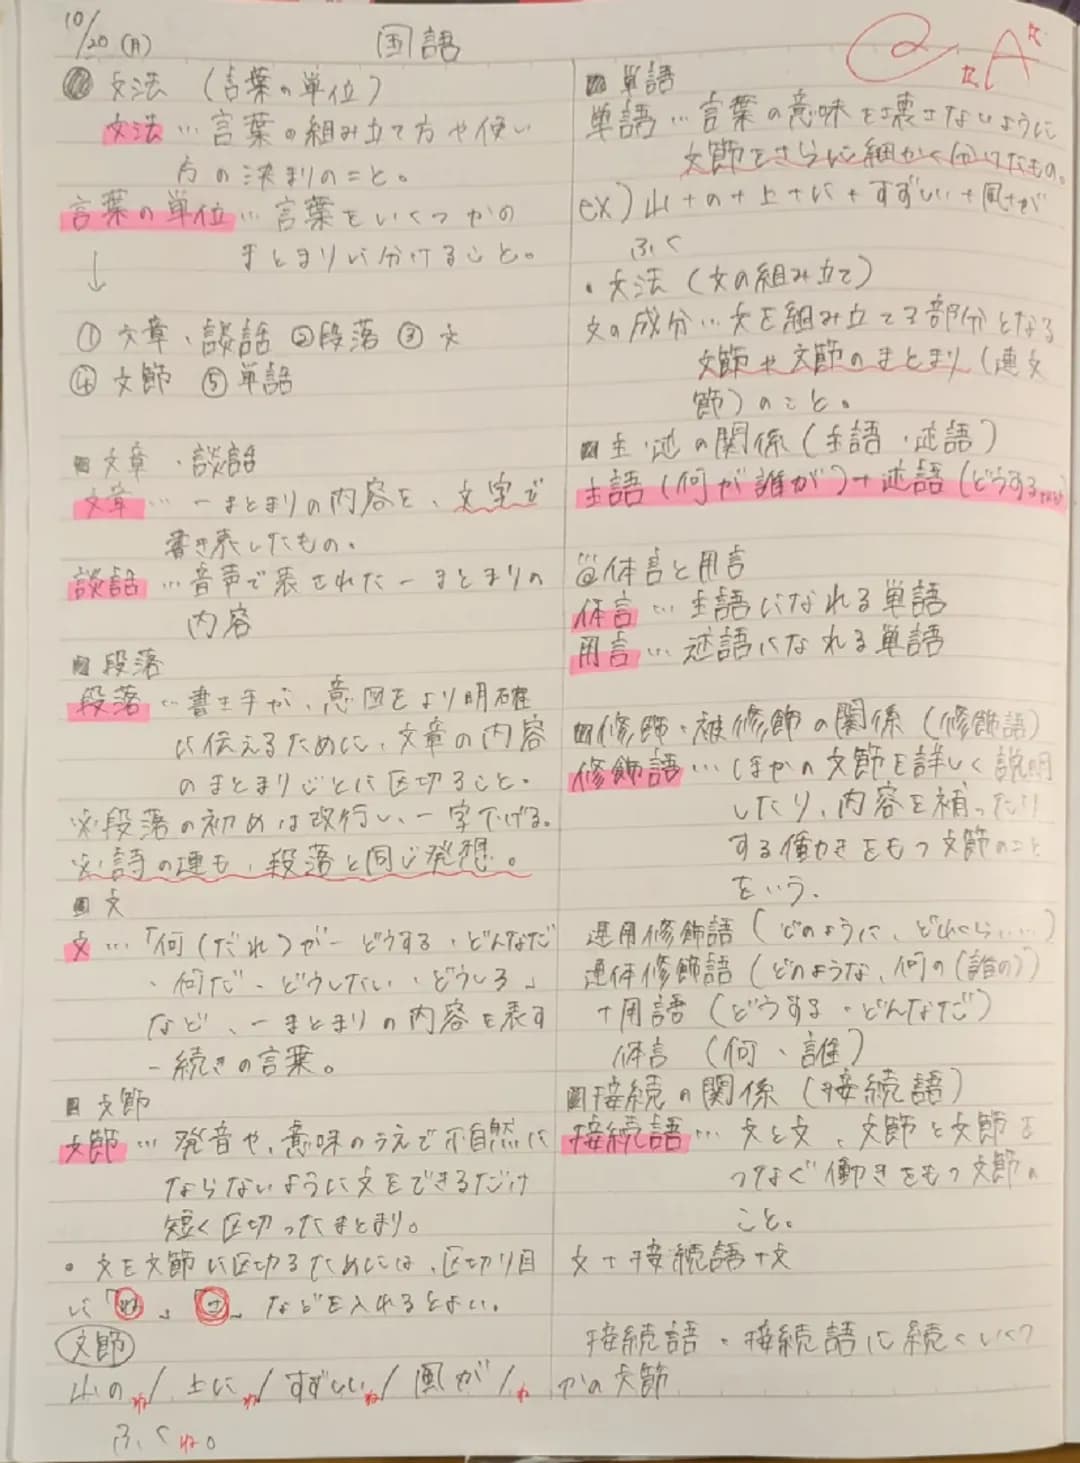 10/20(月)
国語
文法 (言葉の単位)
文法…言葉の組み立て方や使い
方の決まりのこと。
言葉の単位…言葉をいくつかの
まとまりに分けること。
↓
① 文章・談話 ②段落 ③ 文
④ 文節 ⑤ 単語
文章・談話
文章…一まとまりの内容を、文字で
書き表したもの。
談話…音声で表された一まとまりの
内容
段落
段落…書き手が、意図をより明確
に伝えるために、文章の内容
のまとまりごとに区切ること。
※段落の初めは改行し、一字下げる。
※詩の連も、段落と同じ発想。
文
文…「何(だれ)が-どうする・どんなだ
・何だ・どうしたい・どうしろ」
など、一まとまりの内容を表す
一続きの言葉。
文節
文節…発音や、意味のうえで不自然に
ならないように文をできるだけ
短く区切ったまとまり。
・文を文節に区切るためには、区切り目
に「ね」、「さ」などを入れるとよい。
文節
山のね/上にね/すずしいね/風が/ね
ふくね。
A
単語
単語…言葉の意味を壊さないように
文節をさらに細かく分けたもの。
ex)山+の+上+に+すずしい+風+が
ふく
・文法(文の組み立て)
文の成分…文を組み立てる部分となる
文節や文節のまとまり(連文
節)のこと。
主・述の関係(主語・述語)
主語(何が誰が)→述語(どうする
体言と用言
体言…主語になれる単語
用言…述語になれる単語
修飾・被修飾の関係(修飾語)
修飾語…ほかの文節を詳しく説明
したり、内容を補ったり
する働きをもつ文節のこと
をいう.
連用修飾語(どのように、どれくらい…)
連体修飾語(どのような、何の(誰の))
+用語(どうする・どんなだ)
体言(何、誰)
接続の関係(接続語)
接続語…文と文、文節と文節を
つなぐ働きをもつ文節の
こと。
文+接続語+文
接続語・接続語に続くいくつ
かの文節